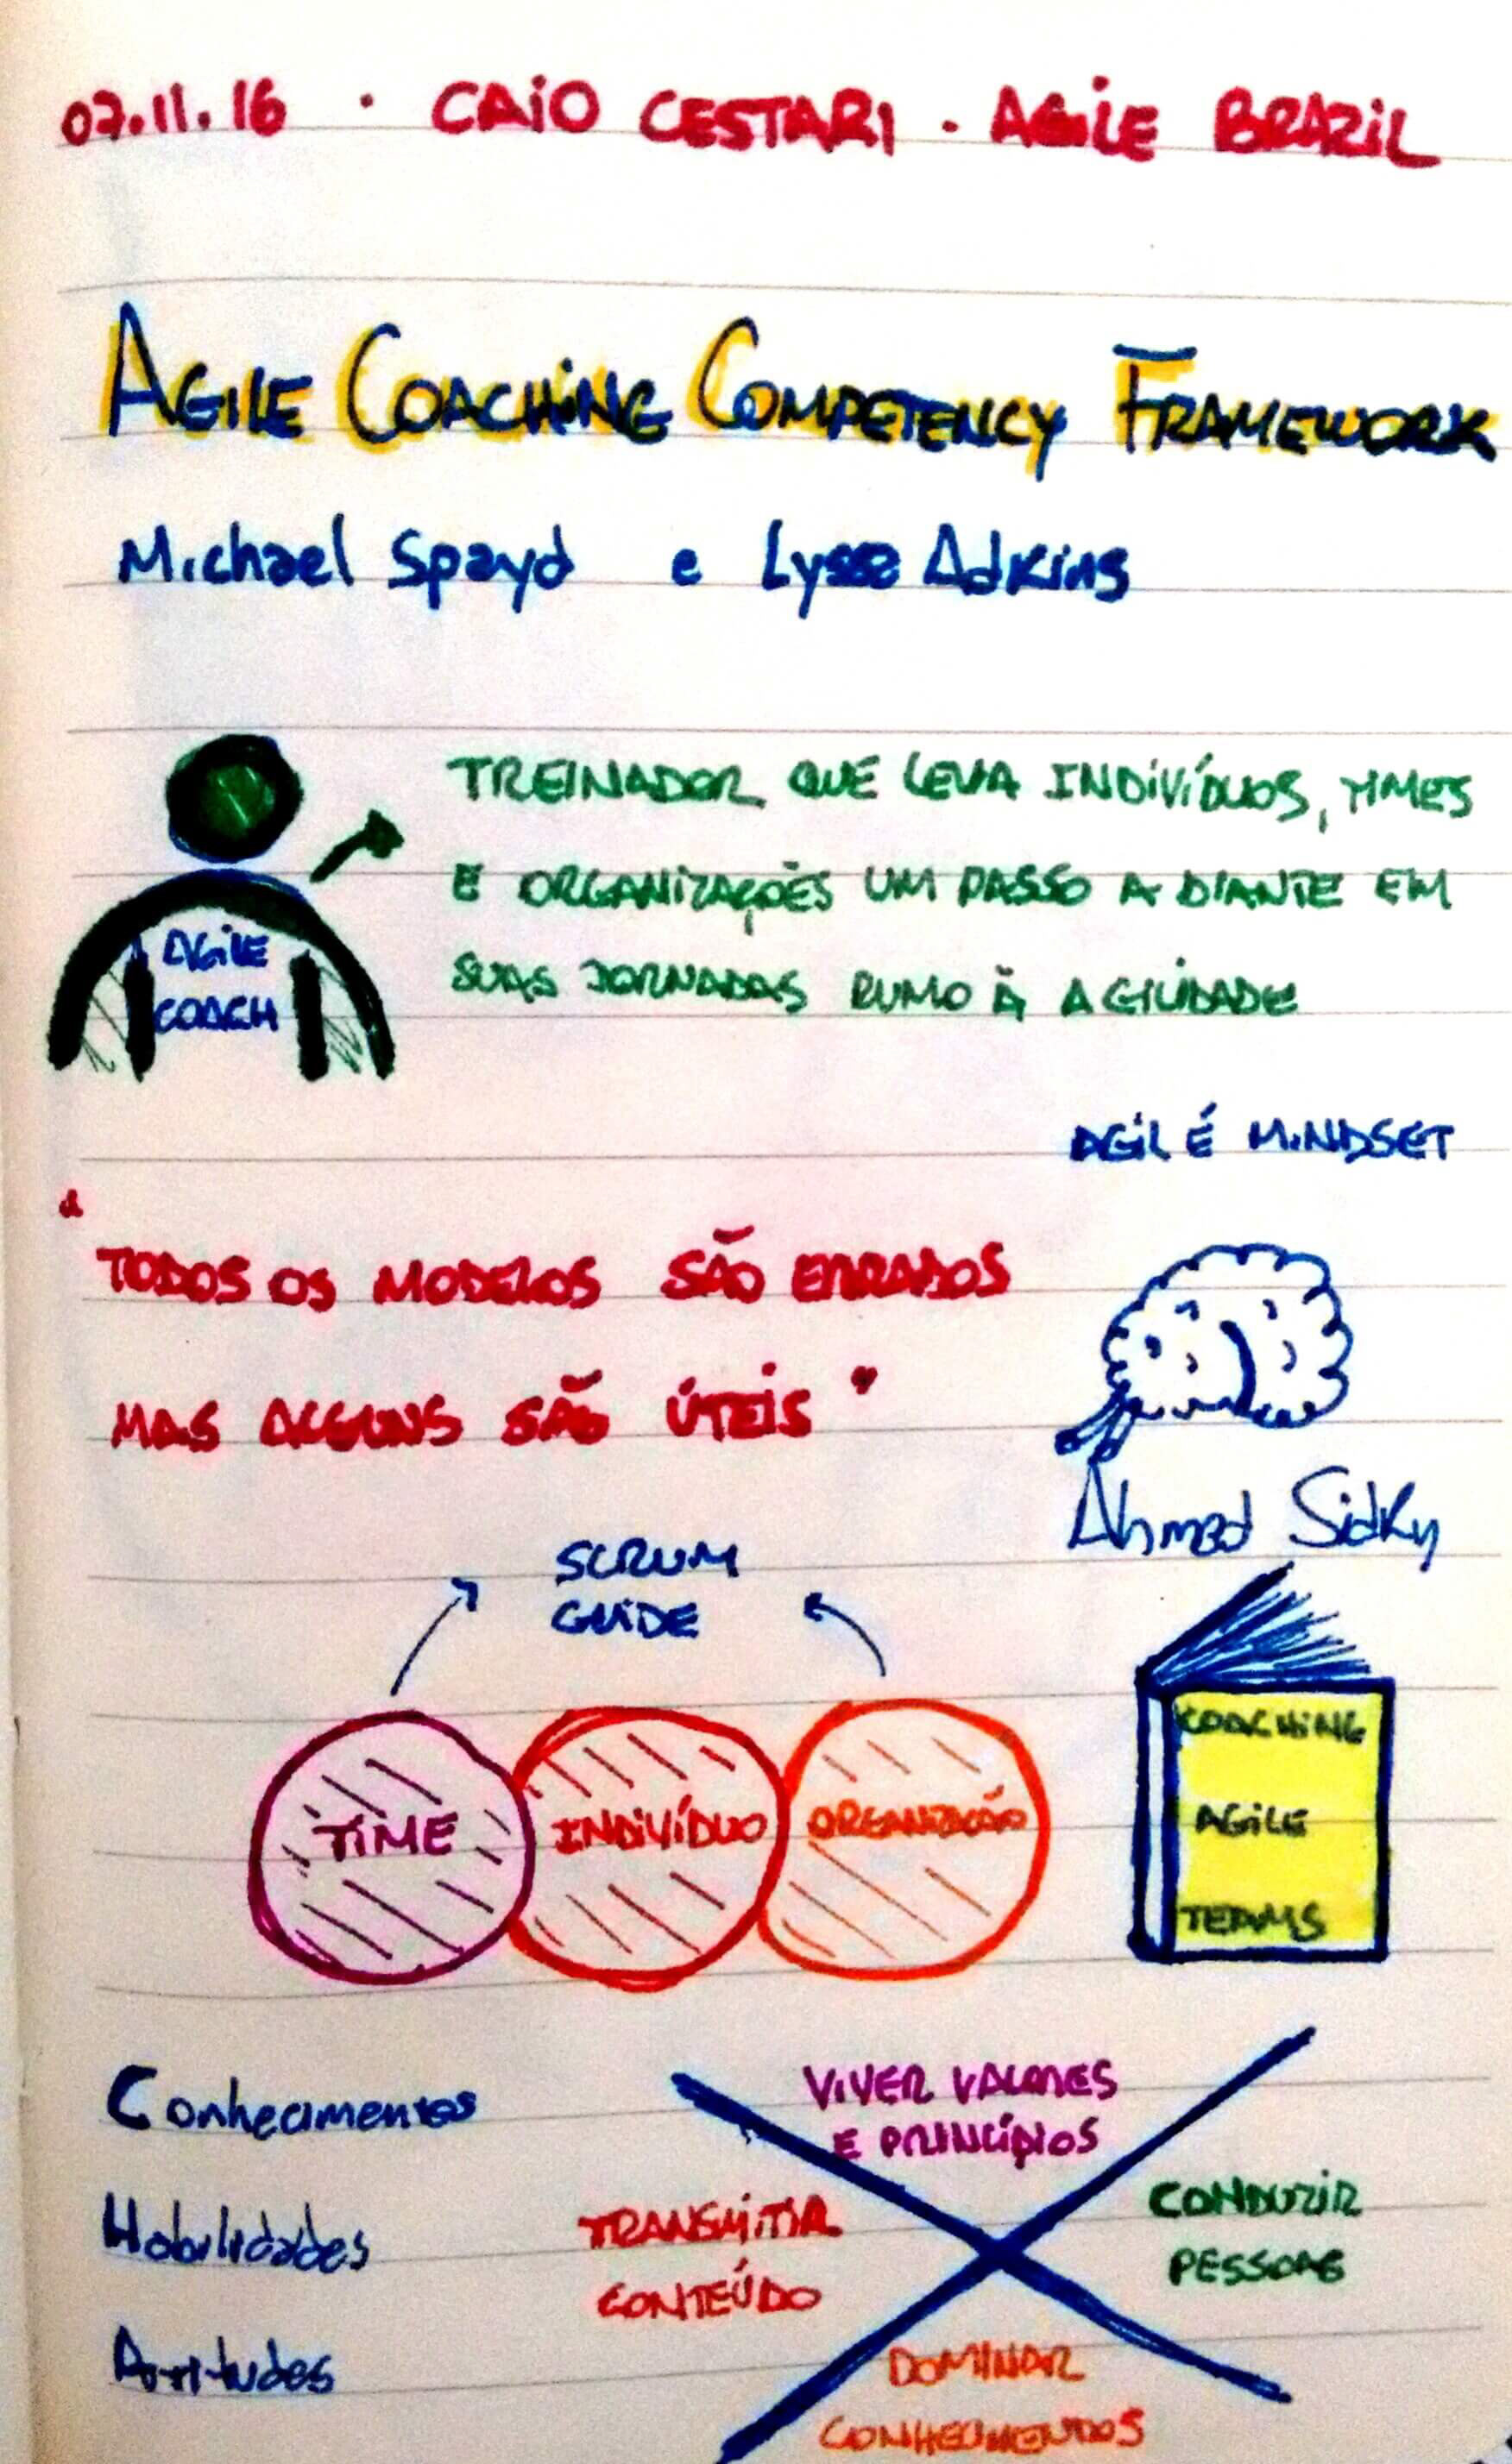 07.11.16 · CAIO CESTARI · AGILE BRAZIL
AGILE COACHING COMPETENCY FRAMEWORK
Michael Spayd e Lyssa Adkins
AGILE
COACH
TREINADOR QUE LEVA INDIVÍDUOS, TIMES
E ORGANIZAÇÕES UM PASSO A DIANTE EM
SUAS JORNADAS RUMO À AGILIDADE
AGIL É MINDSET
"TODOS OS MODELOS SÃO ERRADOS
MAS ALGUNS SÃO ÚTEIS"
Ahmed Sidky
SCRUM
GUIDE
TIME INDIVÍDUO ORGANIZAÇÃO
COACHING
AGILE
TEAMS
Conhecimentos
Habilidades
Atitudes
VIVER VALORES
E PRINCÍPIOS
TRANSMITIR
CONTEÚDO
CONDUZIR
PESSOAS
DOMINAR
CONHECIMENTOS